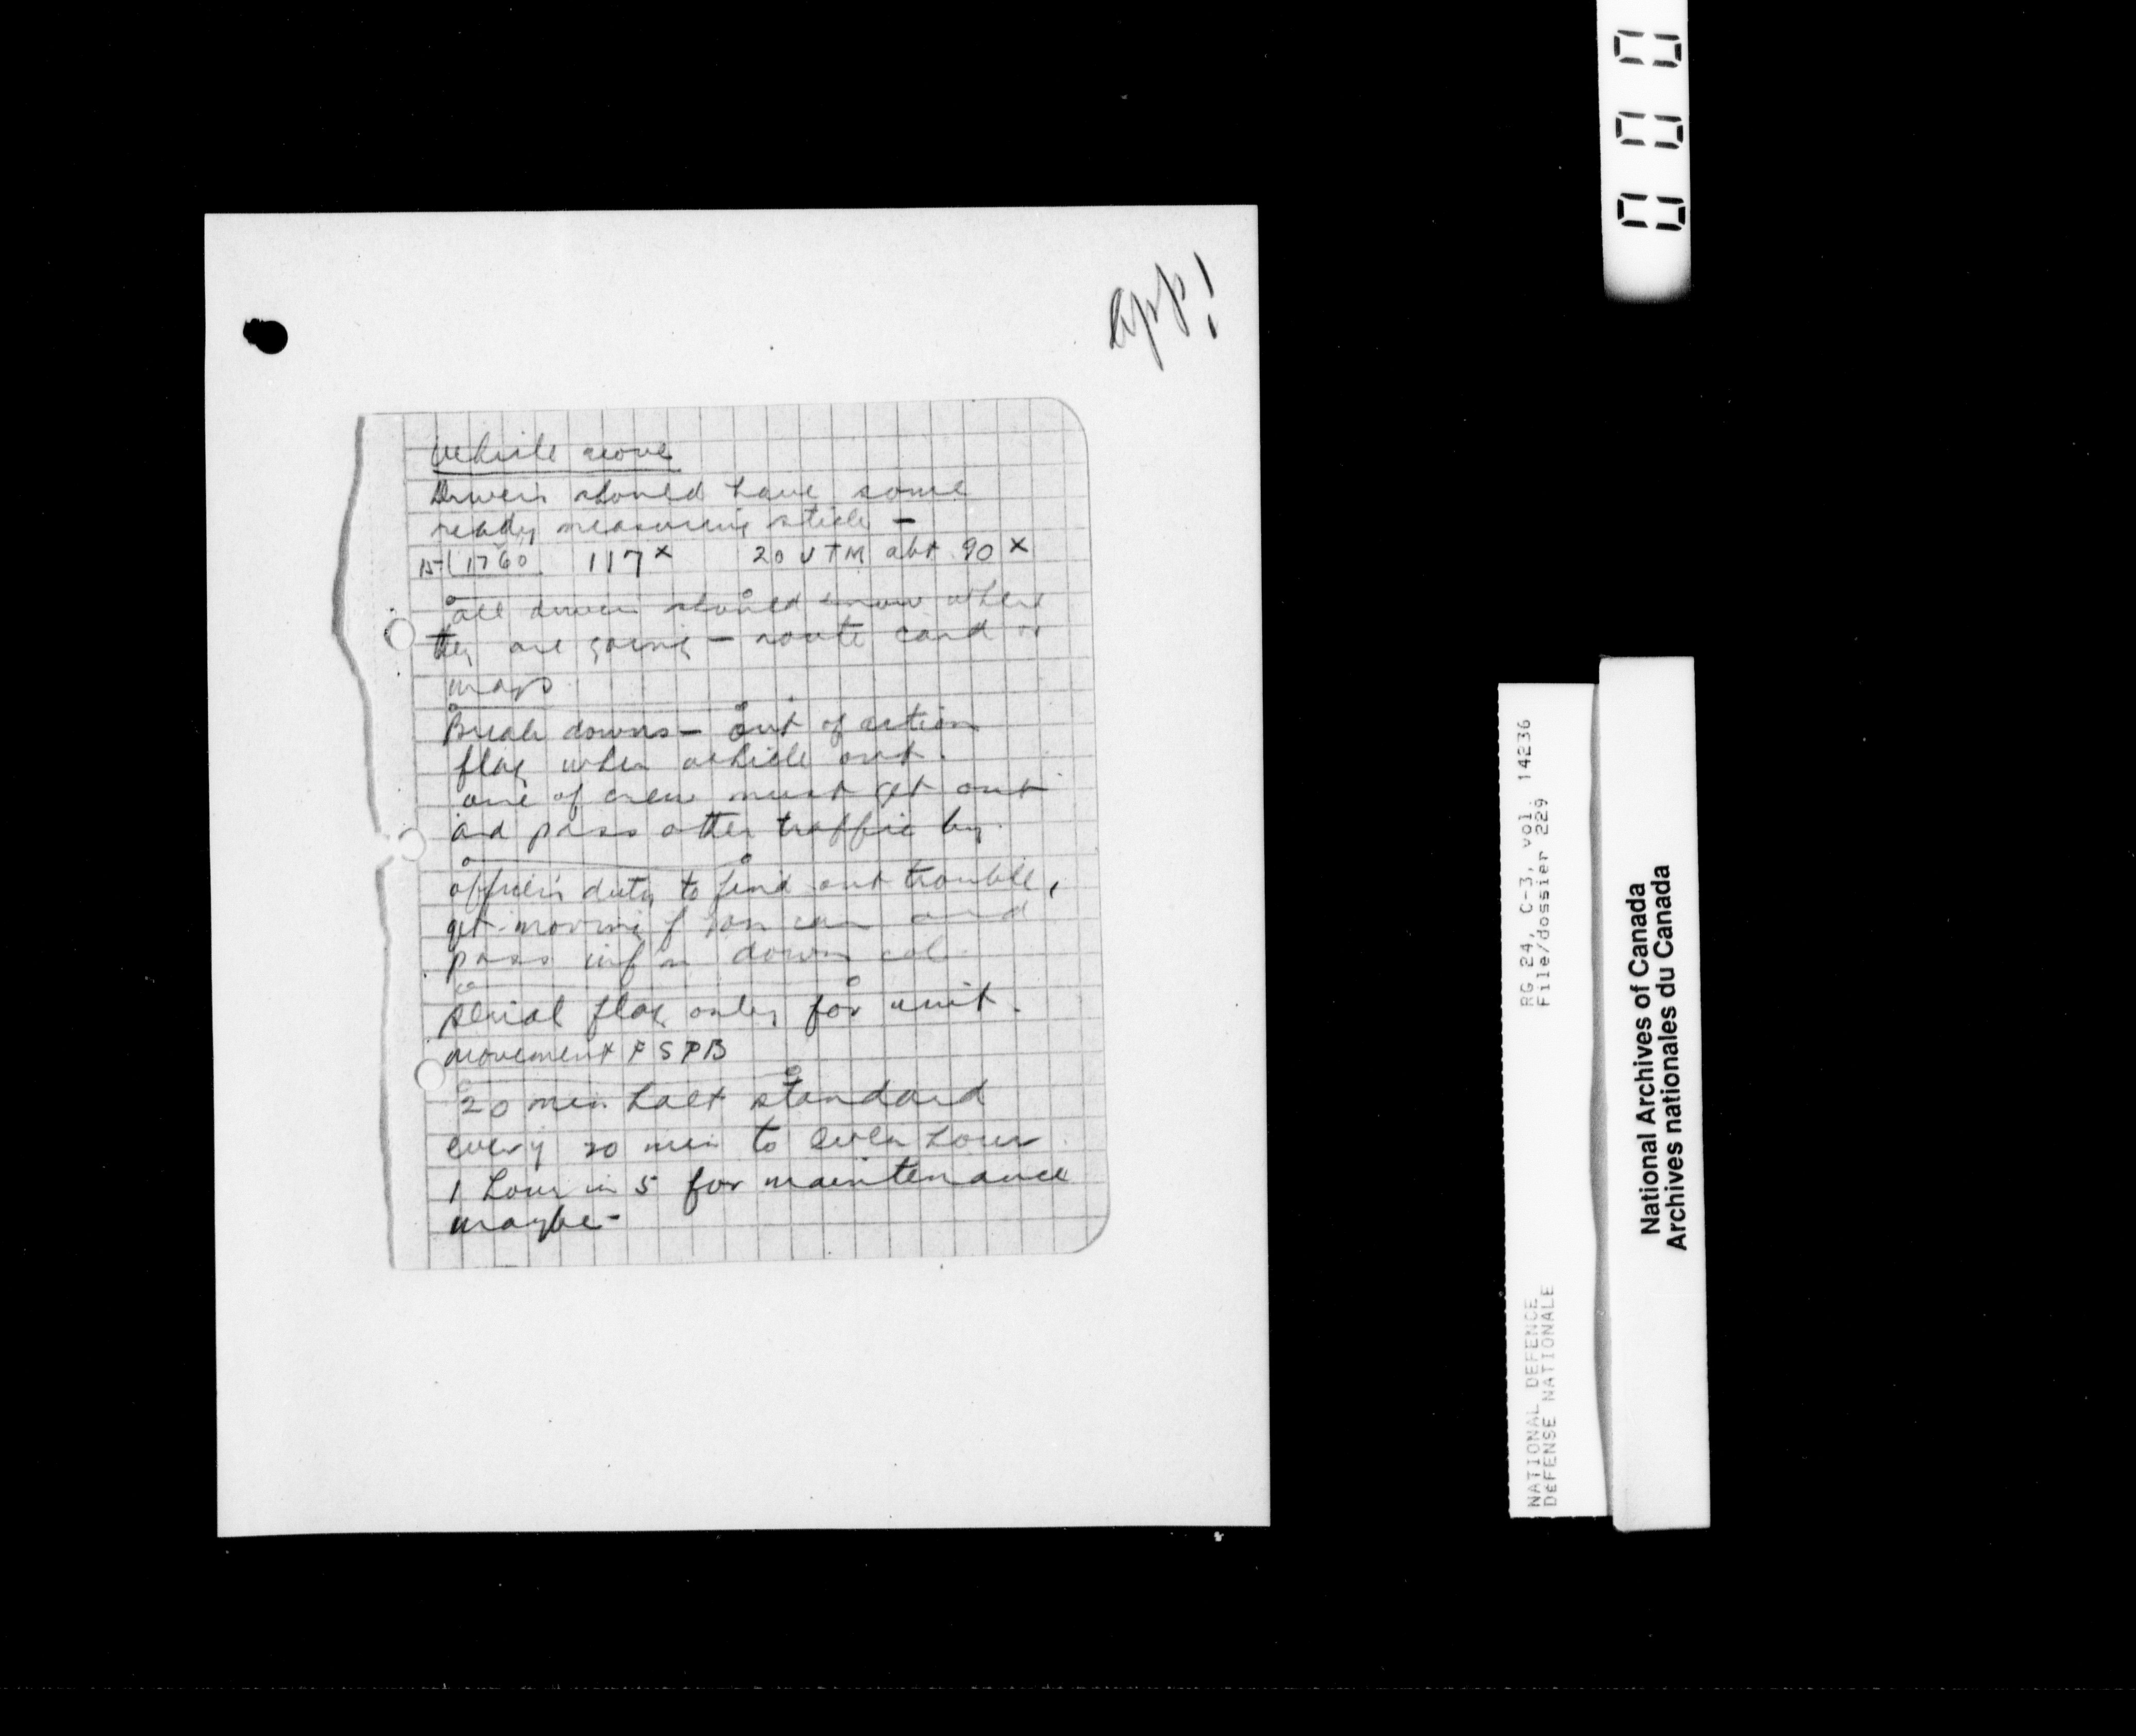 app!
Vehicle move
Drivers should have some
ready measuring stick -
15 ( 1760 117x 20 VTM abt 90 x
all drivers should know where
they are going - route card or
maps
Break downs - out of action
flag when vehicle out.
one of crew must get out
and pass other traffic by.
officer's duty to find out trouble,
get moving if you can and
pass inf'n down col.
Serial flag only for unit.
movement F S P B
20 min halt standard
every 20 min to even hour
1 hour in 5 for maintenance
maybe -
000
RG 24, C-3, vol. 14236
File/dossier 229
NATIONAL DEFENCE
DÉFENSE NATIONALE
National Archives of Canada
Archives nationales du Canada